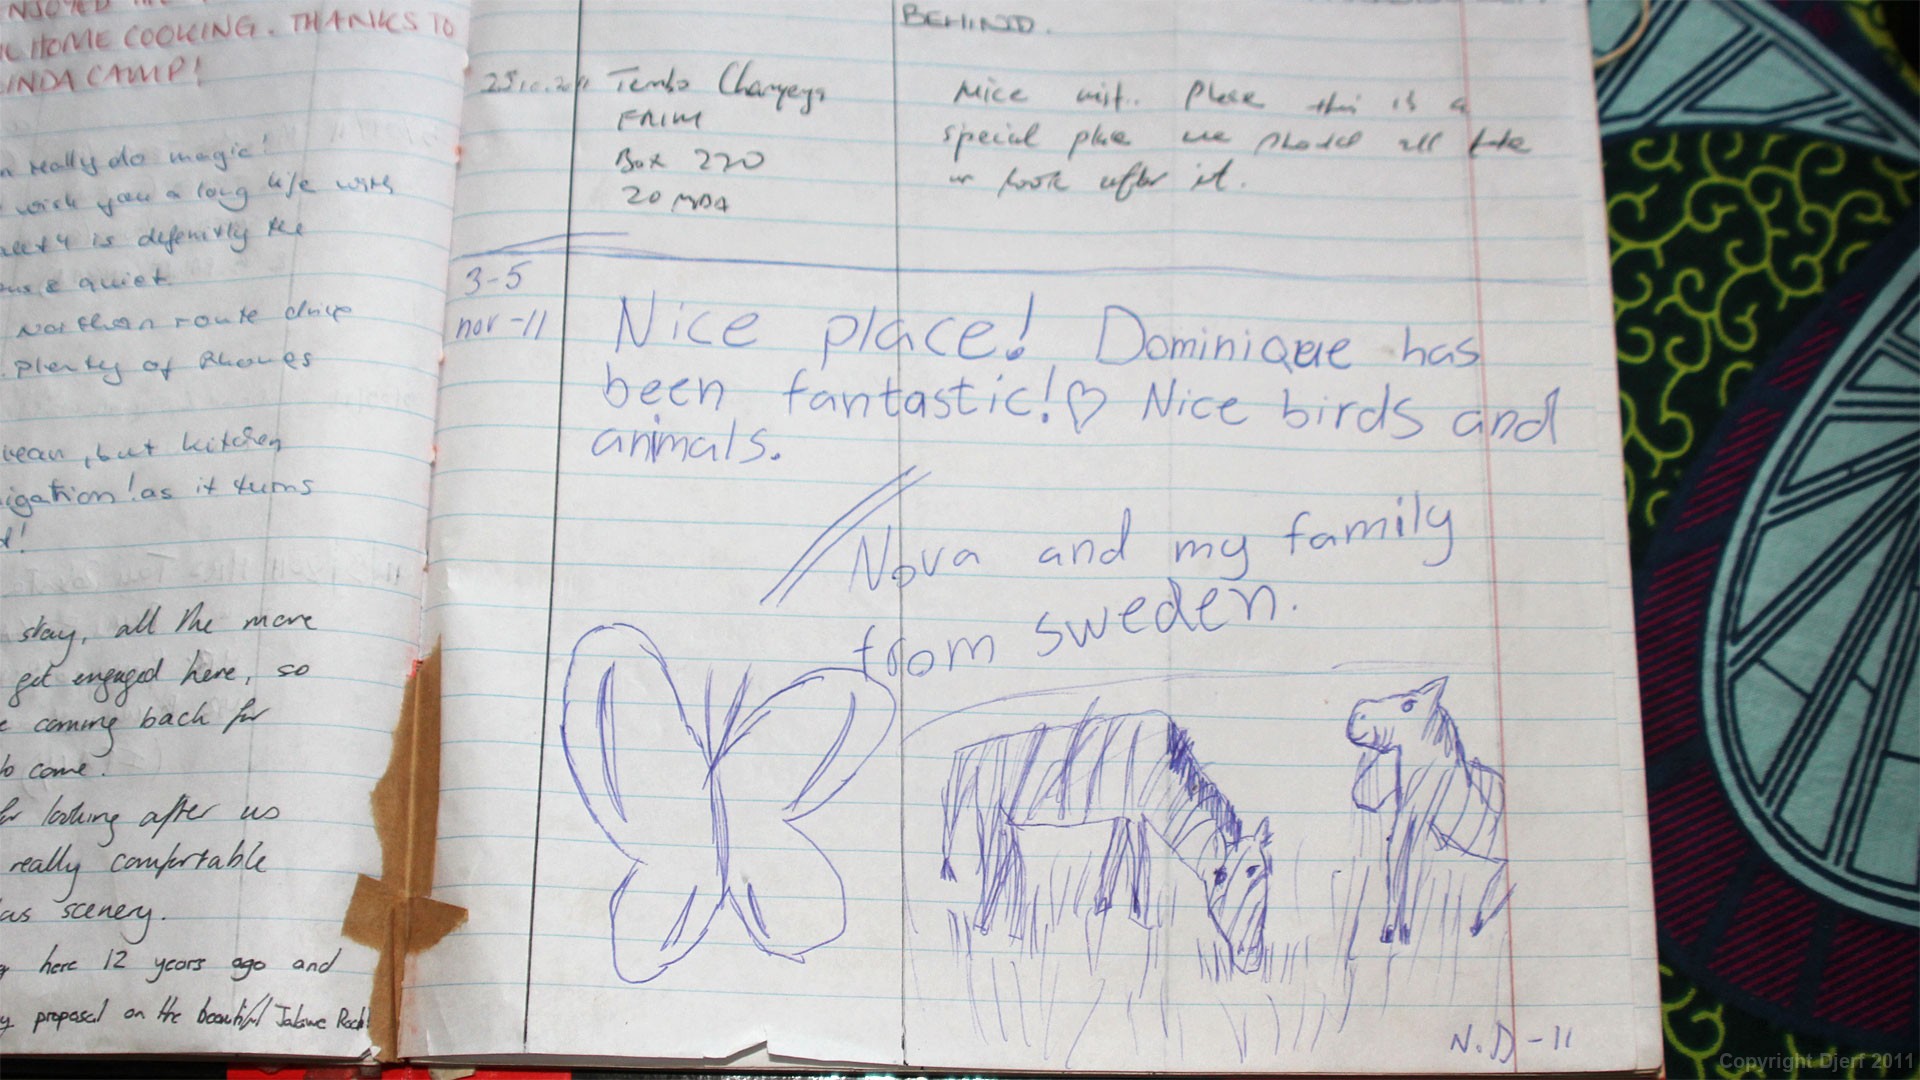 ENJOYED
HOME COOKING. THANKS TO
LINDA CAMP!
really do magic!
wish you a long life with
is defenitly the
& quiet.
Northan route drive
plenty of Rhoues
, but kitchen
igation! as it turns
stay, all the more
get engaged here, so
coming back for
to come.
for looking after us
really comfortable
scenery.
here 12 years ago and
proposed on the beautiful Jalawe Rock!
BEHIND.
25.10.2011 Tembo Chanyenga
FRIM
Box 270
ZOMBA
Nice visit. Please this is a
special place we should all take
or look after it.
3-5
nov -11
Nice place! Dominique has
been fantastic!♡ Nice birds and
animals.
Nova and my family
from sweden.
N.D -11
Copyright Djerf 2011